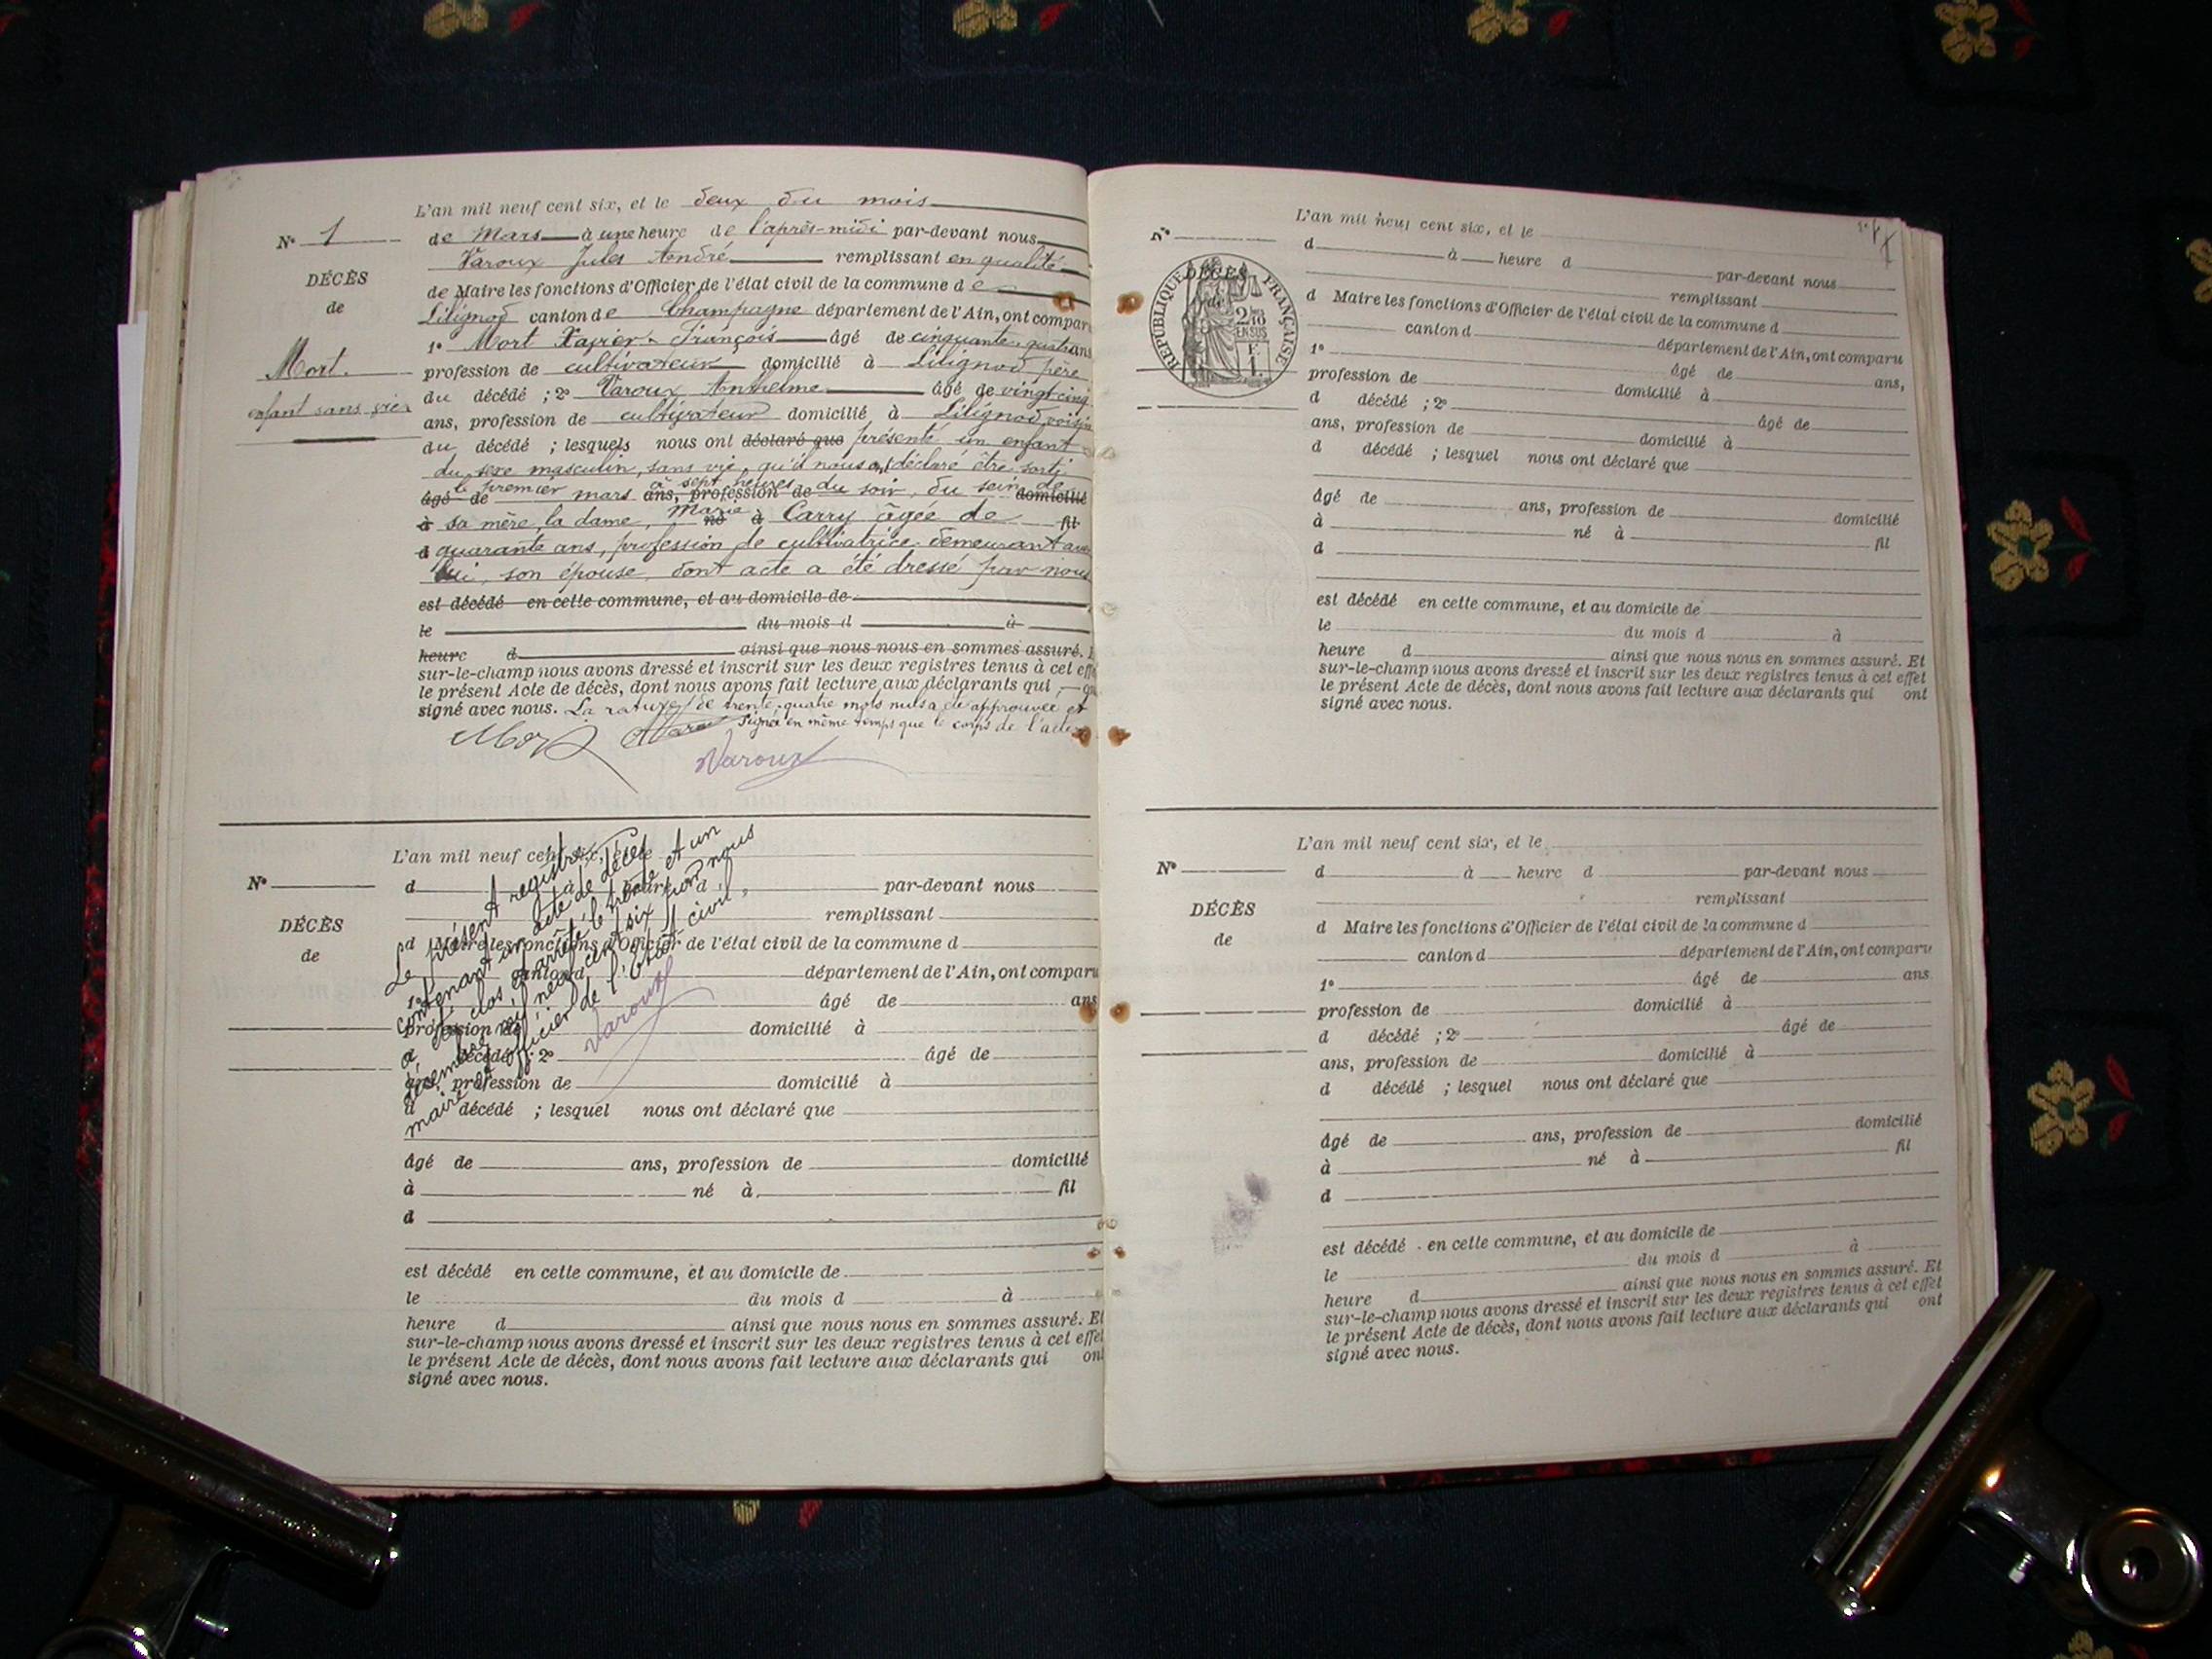 L'an mil neuf cent six, et le deux du mois
N° 1
de Mars à une heure de l'après-midi par-devant nous
Varoux Jules André remplissant en qualité
DÉCÈS
de Maire les fonctions d'Officier de l'état civil de la commune de
de
Lilignod canton de Champagne département de l'Ain, ont compar
1° Mort Xavier-François âgé de cinquante-quatre ans
Mort.
profession de cultivateur domicilié à Lilignod père
enfant sans vie
du décédé ; 2° Varoux Anthelme âgé de vingt-cinq
ans, profession de cultivateur domicilié à Lilignod voisin
du décédé ; lesquels nous ont déclaré que présenté un enfant
du sexe masculin, sans vie, qu'il nous a déclaré être sorti
âgé de le premier mars à sept heures ans, profession de du soir, du sein de domicilié
à sa mère, la dame, Marie né à Carry âgée de fil
d quarante ans, profession de cultivatrice demeurant avec
lui, son épouse, dont acte a été dressé par nous
est décédé en cette commune, et au domicile de
le du mois d à
heure d ainsi que nous nous en sommes assuré. E
sur-le-champ nous avons dressé et inscrit sur les deux registres tenus à cet eff
le présent Acte de décès, dont nous avons fait lecture aux déclarants qui
signé avec nous. La rature de trente-quatre mots nuls a été approuvée et
signée en même temps que le corps de l'acte
Mort
Varoux
L'an mil neuf cent six, et le
N°
d à heure d par-devant nous
remplissant
DÉCÈS
d Maire les fonctions d'Officier de l'état civil de la commune d
de
canton d département de l'Ain, ont comparu
1° âgé de ans
profession de domicilié à
d décédé ; 2° âgé de
ans, profession de domicilié à
d décédé ; lesquel nous ont déclaré que
âgé de ans, profession de domicilié
à né à fil
d
est décédé en cette commune, et au domicile de
le du mois d à
heure d ainsi que nous nous en sommes assuré. Et
sur-le-champ nous avons dressé et inscrit sur les deux registres tenus à cet effet
le présent Acte de décès, dont nous avons fait lecture aux déclarants qui ont
signé avec nous.
Le présent registre
contenant un acte de décès
a été clos et arrêté le trente et un
décembre mil neuf cent six par nous
maire et officier de l'Etat civil,
Varoux
L'an mil neuf cent six, et le
N°
d à heure d par-devant nous
remplissant
DÉCÈS
de
RÉPUBLIQUE FRANÇAISE
2/10
EN SUS
d Maire les fonctions d'Officier de l'état civil de la commune d
canton d département de l'Ain, ont comparu
1° âgé de ans,
profession de domicilié à
d décédé ; 2° âgé de
ans, profession de domicilié à
d décédé ; lesquel nous ont déclaré que
âgé de ans, profession de domicilié
à né à fil
d
est décédé en cette commune, et au domicile de
le du mois d à
heure d ainsi que nous nous en sommes assuré. Et
sur-le-champ nous avons dressé et inscrit sur les deux registres tenus à cet effet
le présent Acte de décès, dont nous avons fait lecture aux déclarants qui ont
signé avec nous.
L'an mil neuf cent six, et le
N°
d à heure d par-devant nous
remplissant
DÉCÈS
d Maire les fonctions d'Officier de l'état civil de la commune d
de
canton d département de l'Ain, ont comparu
1° âgé de ans
profession de domicilié à
d décédé ; 2° âgé de
ans, profession de domicilié à
d décédé ; lesquel nous ont déclaré que
âgé de ans, profession de domicilié
à né à fil
d
est décédé en cette commune, et au domicile de
le du mois d à
heure d ainsi que nous nous en sommes assuré. Et
sur-le-champ nous avons dressé et inscrit sur les deux registres tenus à cet effet
le présent Acte de décès, dont nous avons fait lecture aux déclarants qui ont
signé avec nous.